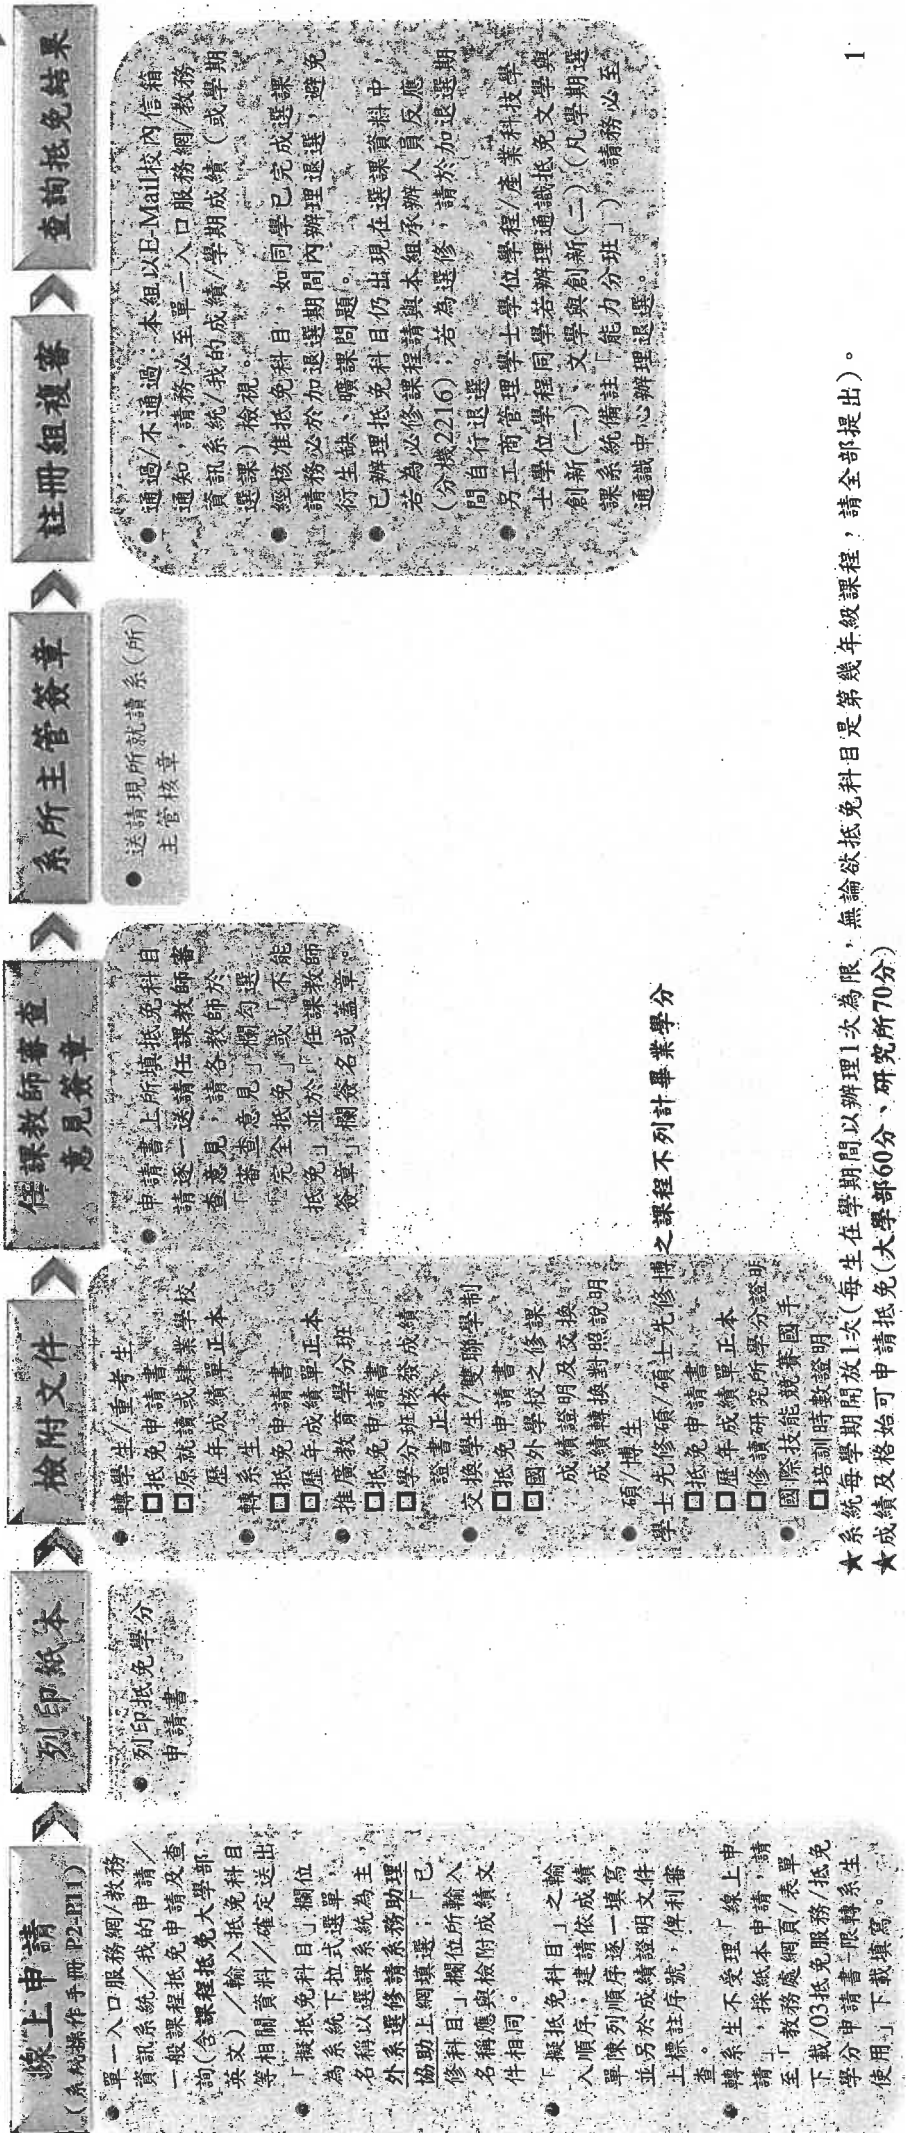 線上申請
(系統操作手冊 P2-P11)
● 單一入口服務網/教務
資訊系統/我的申請/
一般課程抵免申請及查
詢(含課程抵免大學部
英文)/輸入抵免科目
等相關資料/確定送出
● 「擬抵免科目」欄位
為系統下拉式選單,
名稱以選課系統為主,
外系選修請系務助理
協助上網填選;「已
修科目」欄位所輸入
名稱應與檢附成績文
件相同。
● 「擬抵免科目」之輸
入順序,建請依成績
單陳列順序逐一填寫,
並另於成績證明文件
上標註序號,俾利審
查。
● 轉系生不受理「線上申
請」,採紙本申請,請
至「教務處網頁/表單
下載/03抵免服務/抵免
學分申請書-限轉系生
使用」下載填寫。
列印紙本
● 列印抵免學分
申請書
檢附文件
● 轉學生/重考生
□抵免申請書
□原就讀或肄業學校
歷年成績單正本
● 轉系生
□抵免申請書
□歷年成績單正本
● 推廣教育學分班
□抵免申請書
□學分班核發成績
證書正本
● 交換學生/雙聯學制
□抵免申請書
□國外學校之修課
成績證明及交換
成績轉換對照說明
● 碩/博生
學士先修碩/碩士先修博之課程不列計畢業學分
□抵免申請書
□歷年成績單正本
□修讀研究所學分證明
● 國際技能競賽國手
□培訓時數證明
任課教師審查
意見簽章
● 申請書上所填抵免科目
請逐一送請任課教師審
查意見,請各教師於
「審查意見」欄勾選
「完全抵免」或「不能
抵免」並於「任課教師
簽章」欄簽名或蓋章。
系所主管簽章
● 送請現所就讀系(所)
主管核章
註冊組複審
查詢抵免結果
● 通過/不通過:本組以E-Mail校內信箱
通知,請務必至單一入口服務網/教務
資訊系統/我的成績/學期成績(或學期
選課)檢視。
● 經核准抵免科目,如同學已完成選課,
請務必於加退選期間內辦理退選,避免
衍生缺、曠課問題。
● 已辦理抵免科目仍出現在選課資料中,
若為必修課程請與本組承辦人員反應
(分機2216);若為選修,請於加退選期
間自行退選。
● 另工商管理學士學位學程/產業科技學
士學位學程同學若辦理通識抵免文學與
創新(一)、文學與創新(二)(凡學期選
課系統備註「能力分班」),請務必至
通識中心辦理退選。
★系統每學期開放1次(每生在學期間以辦理1次為限,無論欲抵免科目是第幾年級課程,請全部提出)。
★成績及格始可申請抵免(大學部60分、研究所70分)
1